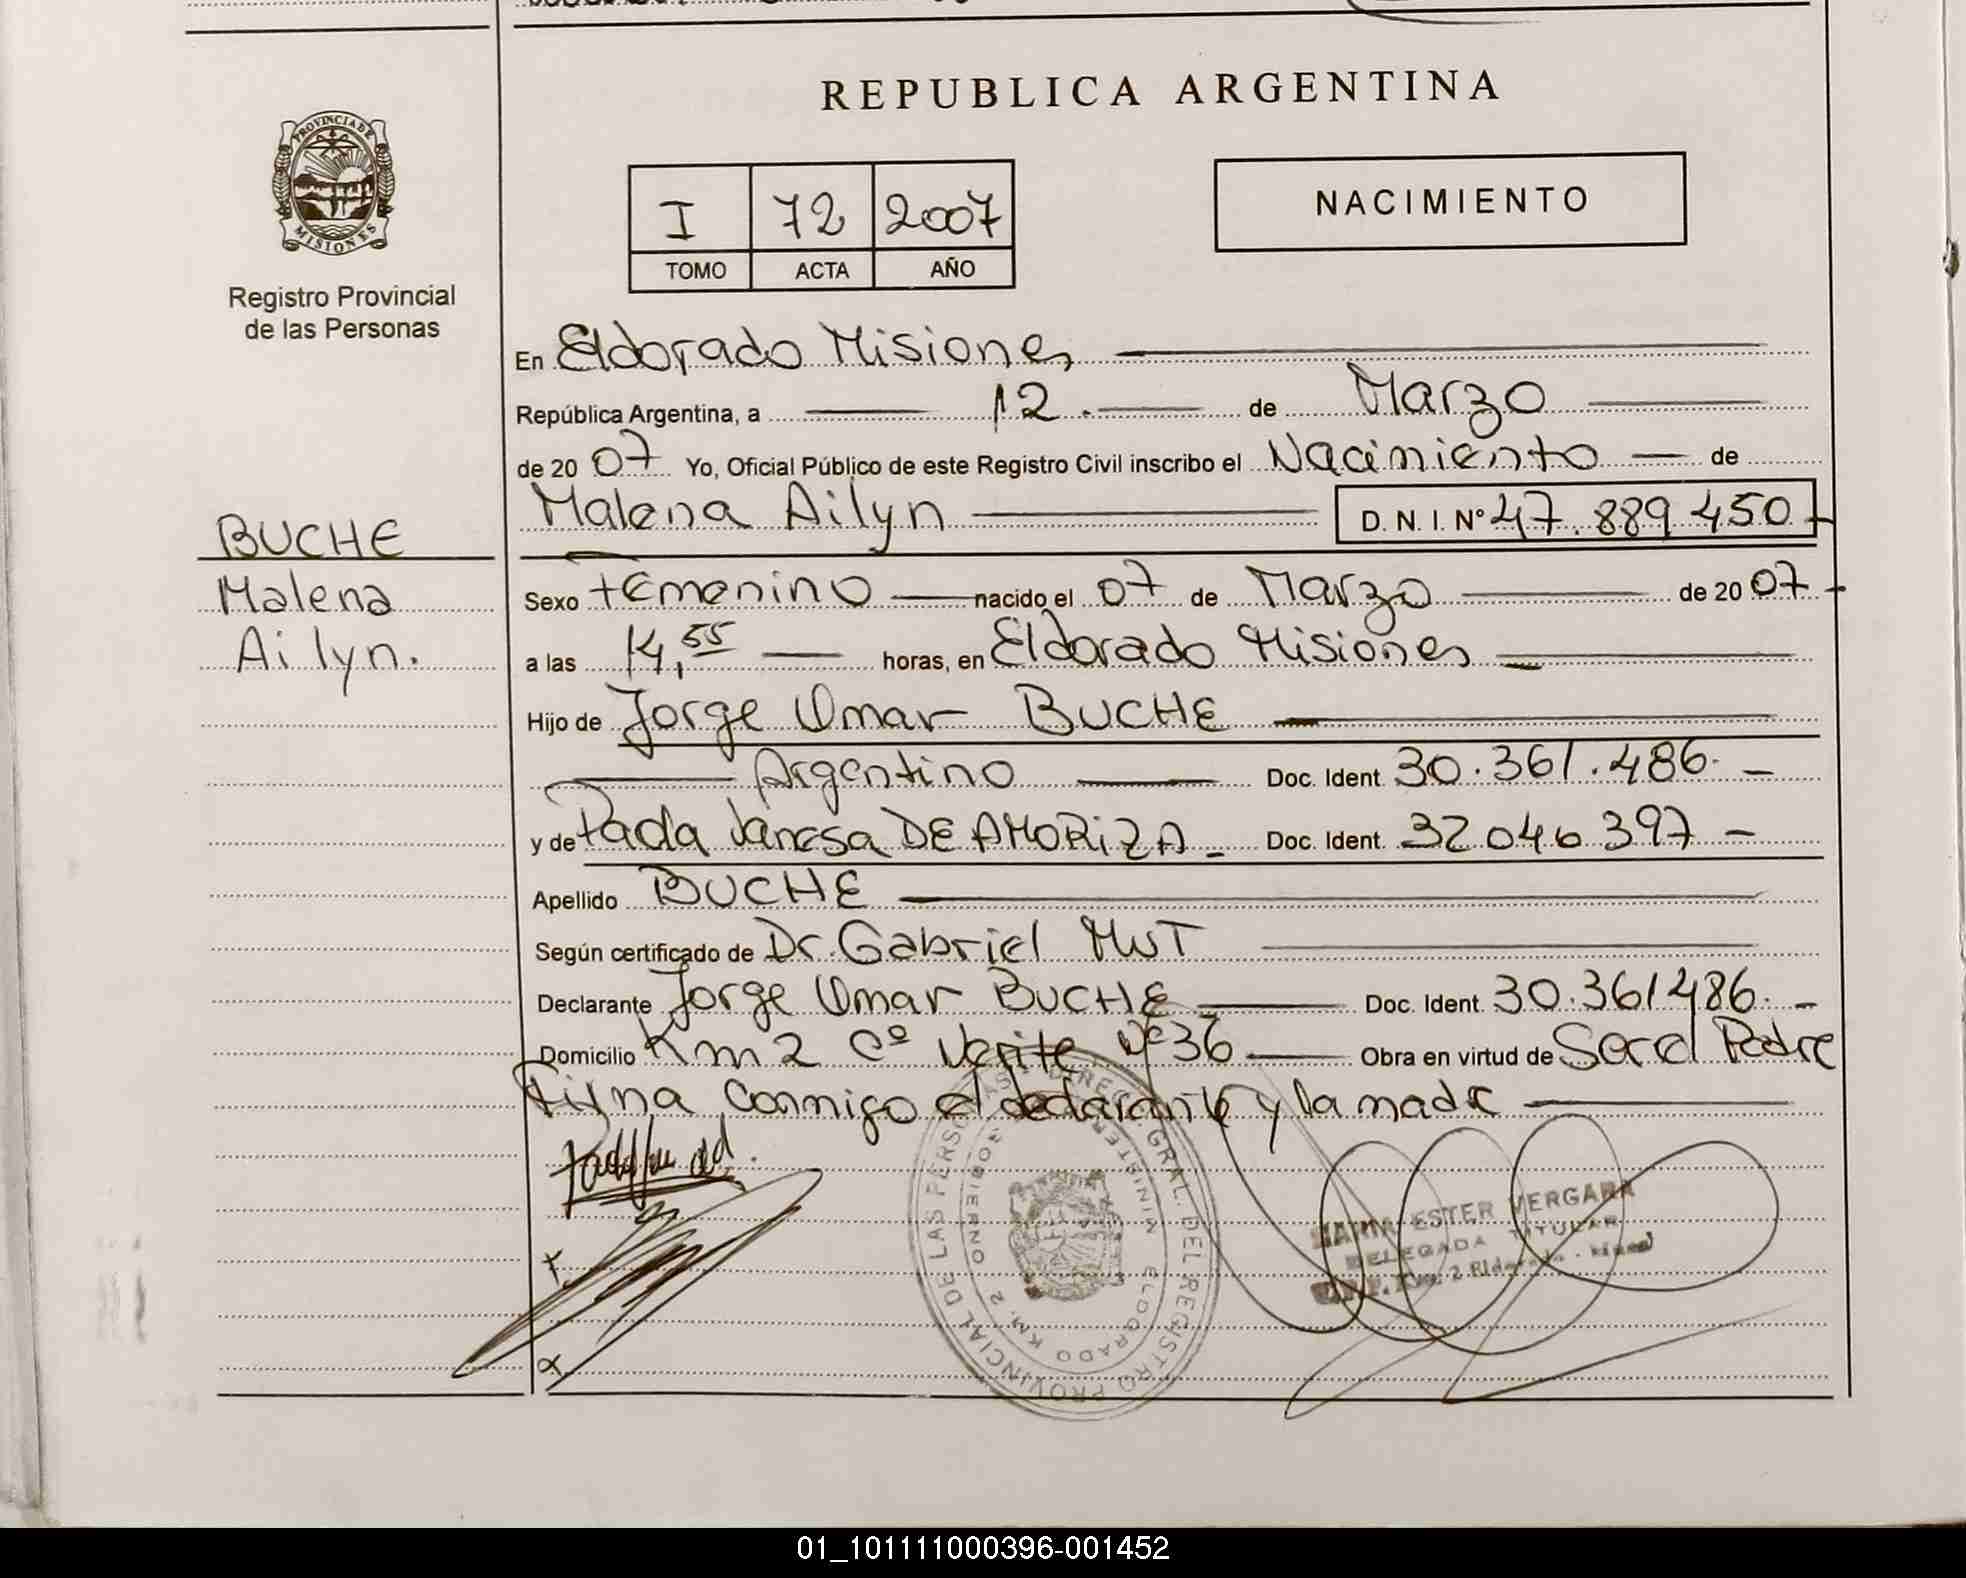 REPUBLICA ARGENTINA
PROVINCIA DE MISIONES
Registro Provincial
de las Personas
I 72 2007
TOMO ACTA AÑO
NACIMIENTO
BUCHE
Malena
Ailyn.
En Eldorado Misiones
República Argentina, a 12. de Marzo
de 2007 Yo, Oficial Público de este Registro Civil inscribo el Nacimiento de
Malena Ailyn D. N. I. N° 47.889.450
Sexo Femenino nacido el 07 de Marzo de 2007
a las 14,55 horas, en Eldorado Misiones
Hijo de Jorge Omar BUCHE
Argentino Doc. Ident. 30.361.486.
y de Paola Vanesa DE AMORIZA Doc. Ident. 32046397
Apellido BUCHE
Según certificado de Dr. Gabriel
Declarante Jorge Omar BUCHE Doc. Ident. 30.361486.
Domicilio Km 2 Cº Nº 36 Obra en virtud de Padre
Firma conmigo el declarante y la madre
REG. GRAL. DEL REGISTRO PROVINCIAL DE LAS PERSONAS
MINISTERIO GOBIERNO
ELDORADO KM. 2
MARIA ESTER VERGARA
DELEGADA TITULAR
Km. 2 Eldorado
01_101111000396-001452